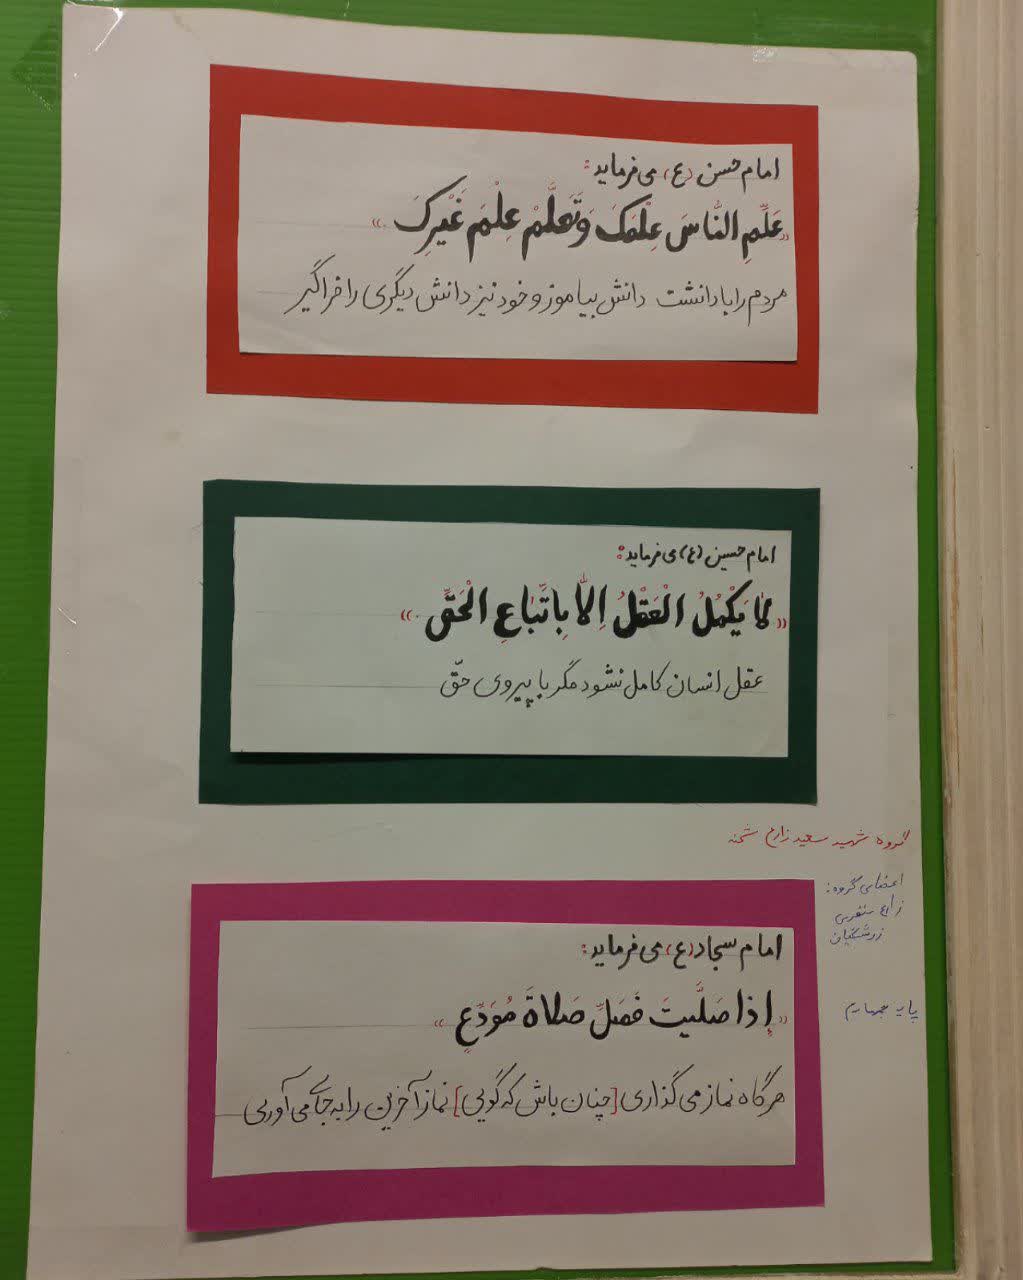 امام حسن (ع) می‌فرماید:
«عَلِّمِ النّاسَ عِلْمَکَ وَ تَعَلَّمْ عِلْمَ غَیْرِکَ.»
مردم را با دانشت دانش بیاموز و خود نیز دانش دیگری را فراگیر
امام حسین (ع) می‌فرماید:
«لا یَکْمُلُ الْعَقْلُ اِلّا بِاتِّبَاعِ الْحَقِّ.»
عقل انسان کامل نشود مگر با پیروی حقّ
گروه شهید سعید زارع
اعضای گروه:
زارع
پایه چهارم
امام سجاد (ع) می‌فرماید:
«إِذا صَلَّیتَ فَصَلِّ صَلاةَ مُوَدِّعٍ»
هرگاه نماز می‌گذاری [چنان باش که گویی] نماز آخرین را به جا می‌آوری